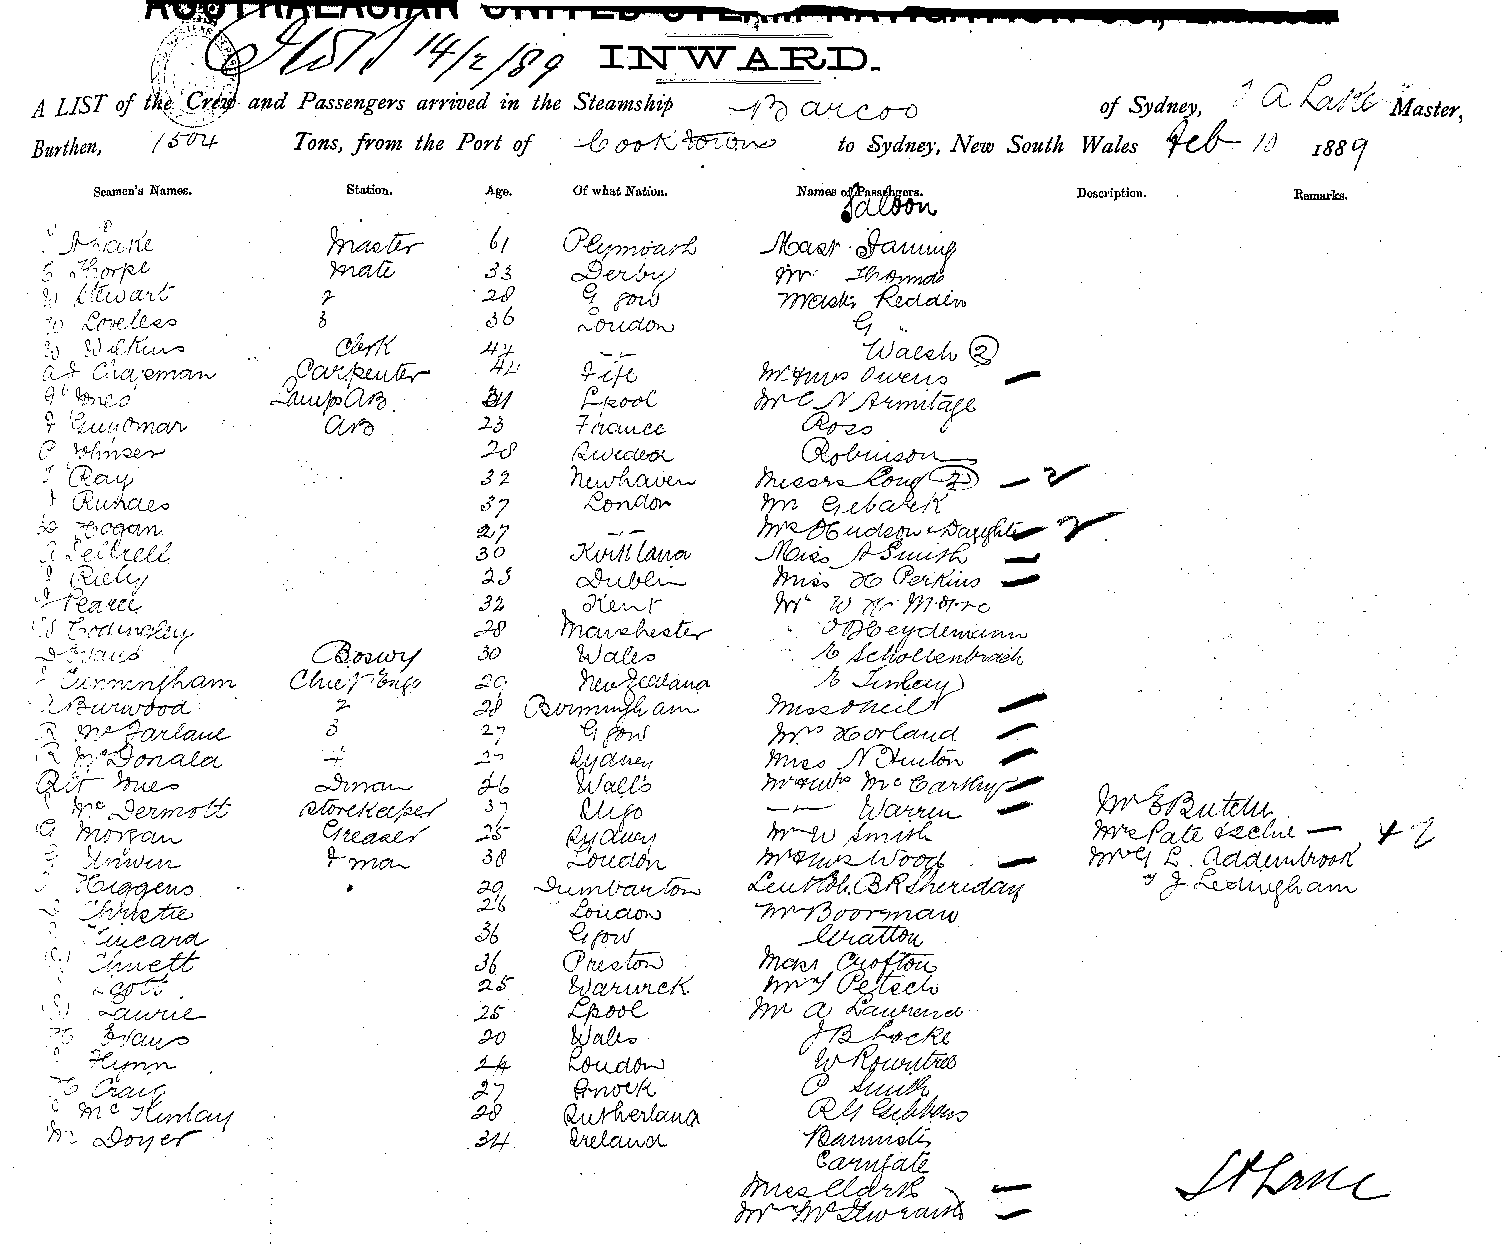 AUSTRALASIAN UNITED STEAM NAVIGATION CO., LIMITED
14/2/89 INWARD.
A LIST of the Crew and Passengers arrived in the Steamship Barcoo of Sydney, A Lake Master,
Burthen, 1504 Tons, from the Port of Cooktown to Sydney, New South Wales Feb 10 1889
Seamen's Names. Station. Age. Of what Nation. Names of Passengers. Description. Remarks.
Saloon
A Lake Master 61 Plymouth Mast
Thorpe Mate 33 Derby Mr Thomas
W Stewart 2 28 Ggow Reddin
W Loveless 3 36 London G "
W Wilkins Clerk 42 -- Walsh (2)
Chapman Carpenter 44 Fife Mr & Mrs Owens —
Jones Lamps AB 31 Lpool Mr C N Armitage
J Guyomar AB 23 France Ross
Johnsen 28 Sweden Robinson
Ray 32 Newhaven Messrs Long (2) — 2
Rundes 37 London Mr Geback
Hogan 27 -- Mrs Hudson & Daughter — 2
30 Miss A Smith —
Riely 23 Dublin Miss H Perkins —
Pearce 32 Kent Mr W H Moore
W Codingley 28 Manchester Heydemann
Evans Boswn 30 Wales Schollenbrach
Cunningham Chief Engr 29 New Zealand
Burwood 2 28 Birmingham Miss O'Neil —
R McFarlane 3 27 Ggow Mrs Horland —
R McDonald 4 27 Sydney Miss N Hinton —
Robt Jones Dman 26 Wales Mr & Mrs McCarthy —
McDermott Storekeeper 37 Sligo -- Warren — Mr E Butcher
G Morgan Greaser 25 Sydney Mr W Smith Mrs Pate — + 2
Unwin F man 38 London Mr & Mrs Wood — Mr G L Addenbrook
Higgens " 29 Dumbarton Lieut Col. B R Sheridan " J Ledingham
Christie 26 London Mr Boorman
Kincard 36 Ggow Stratton
36 Preston Crofton
Scott 25 Warwick Mr Petsch
Laurie 25 Lpool Mr A Lawrence
Evans 20 Wales J B Locke
Flynn 24 London W Rowntree
Craig 27 Gnock P Smith
McKinlay 28 Sutherland R G Gibbons
Doyer 34 Ireland Bannister
Carngate
Miss Clark —
Mr McIlwraith —